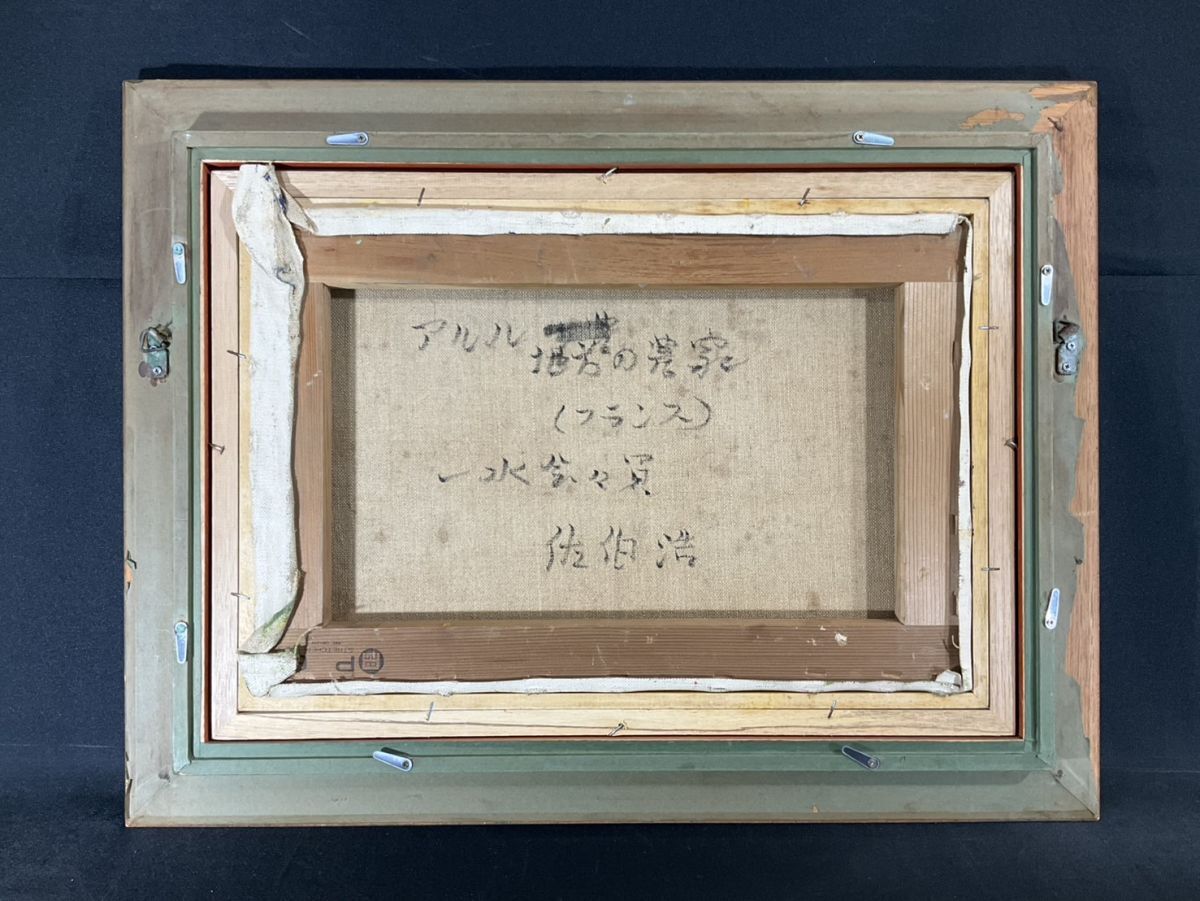 アルル地方の農家
(フランス)
一水会々員
佐伯浩
P
STRETCH